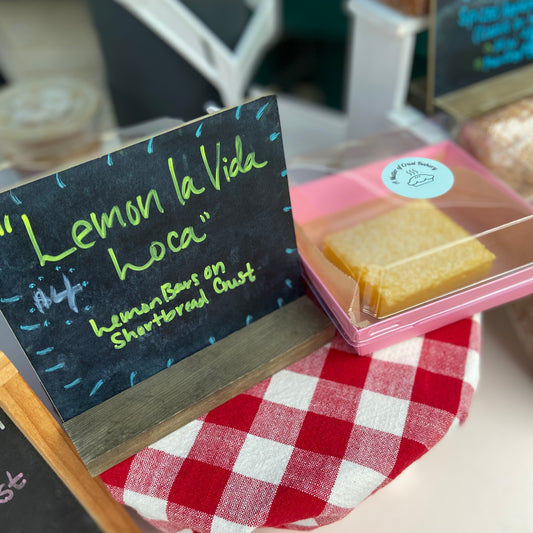 "Lemon la Vida
Loca"
$4
Lemon Bars on
Shortbread Crust
A Matter of Crust Bakery